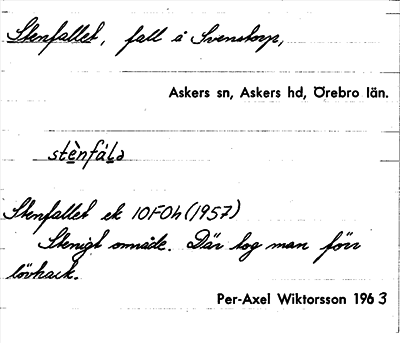 Stenfallet, fall å Svenstorp,
Askers sn, Askers hd, Örebro län.
stènfál̲ə
Stenfallet ek 10F0h (1957)
Stenigt område. Där tog man förr
lövhack.
Per-Axel Wiktorsson 1963